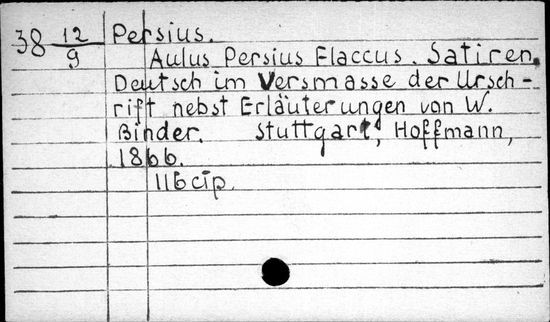 38 12/9 Persius.
Aulus Persius Flaccus. Satiren.
Deutsch im Versmasse der Ursch-
rift nebst Erläuterungen von W.
Binder. Stuttgart, Hoffmann,
1866.
116 стр.